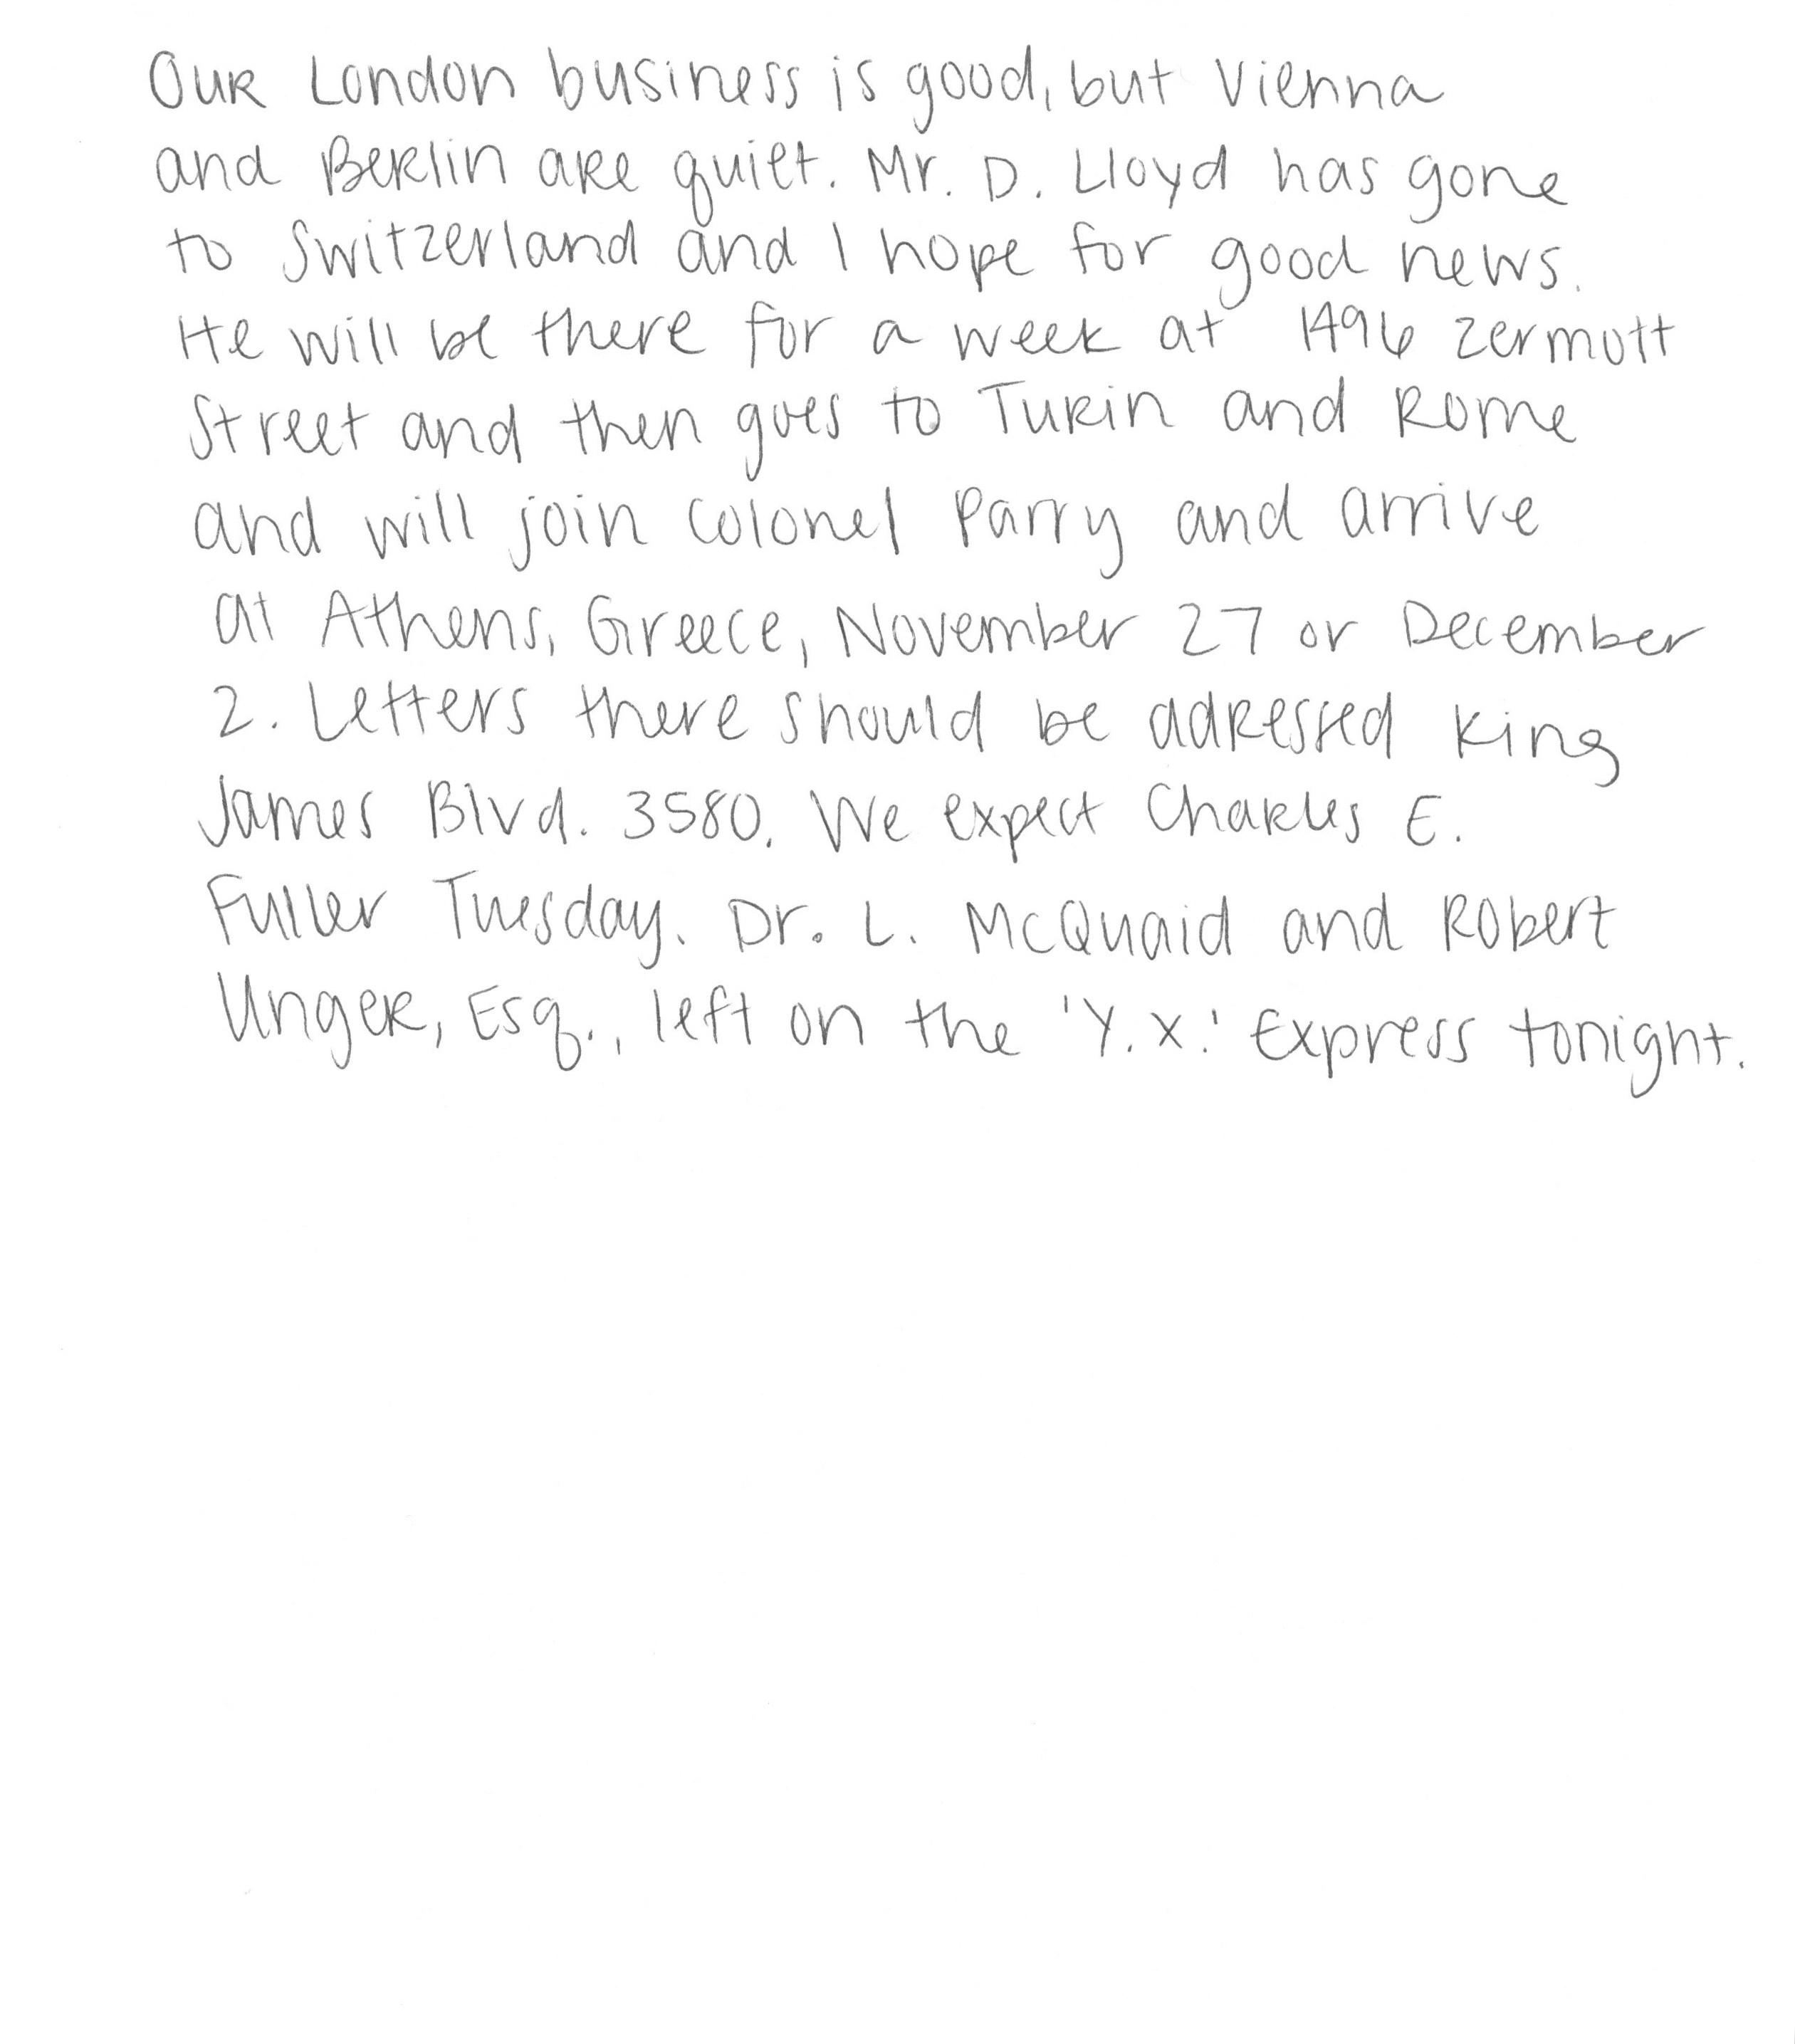 Our London business is good, but Vienna
and Berlin are quiet. Mr. D. Lloyd has gone
to Switzerland and I hope for good news.
He will be there for a week at 1496 Zermott
Street and then goes to Turin and Rome
and will join Colonel Parry and arrive
at Athens, Greece, November 27 or December
2. Letters there should be adressed King
James Blvd. 3580. We expect Charles E.
Fuller Tuesday. Dr. L. McQuaid and Robert
Unger, Esq., left on the 'Y.X.' Express tonight.